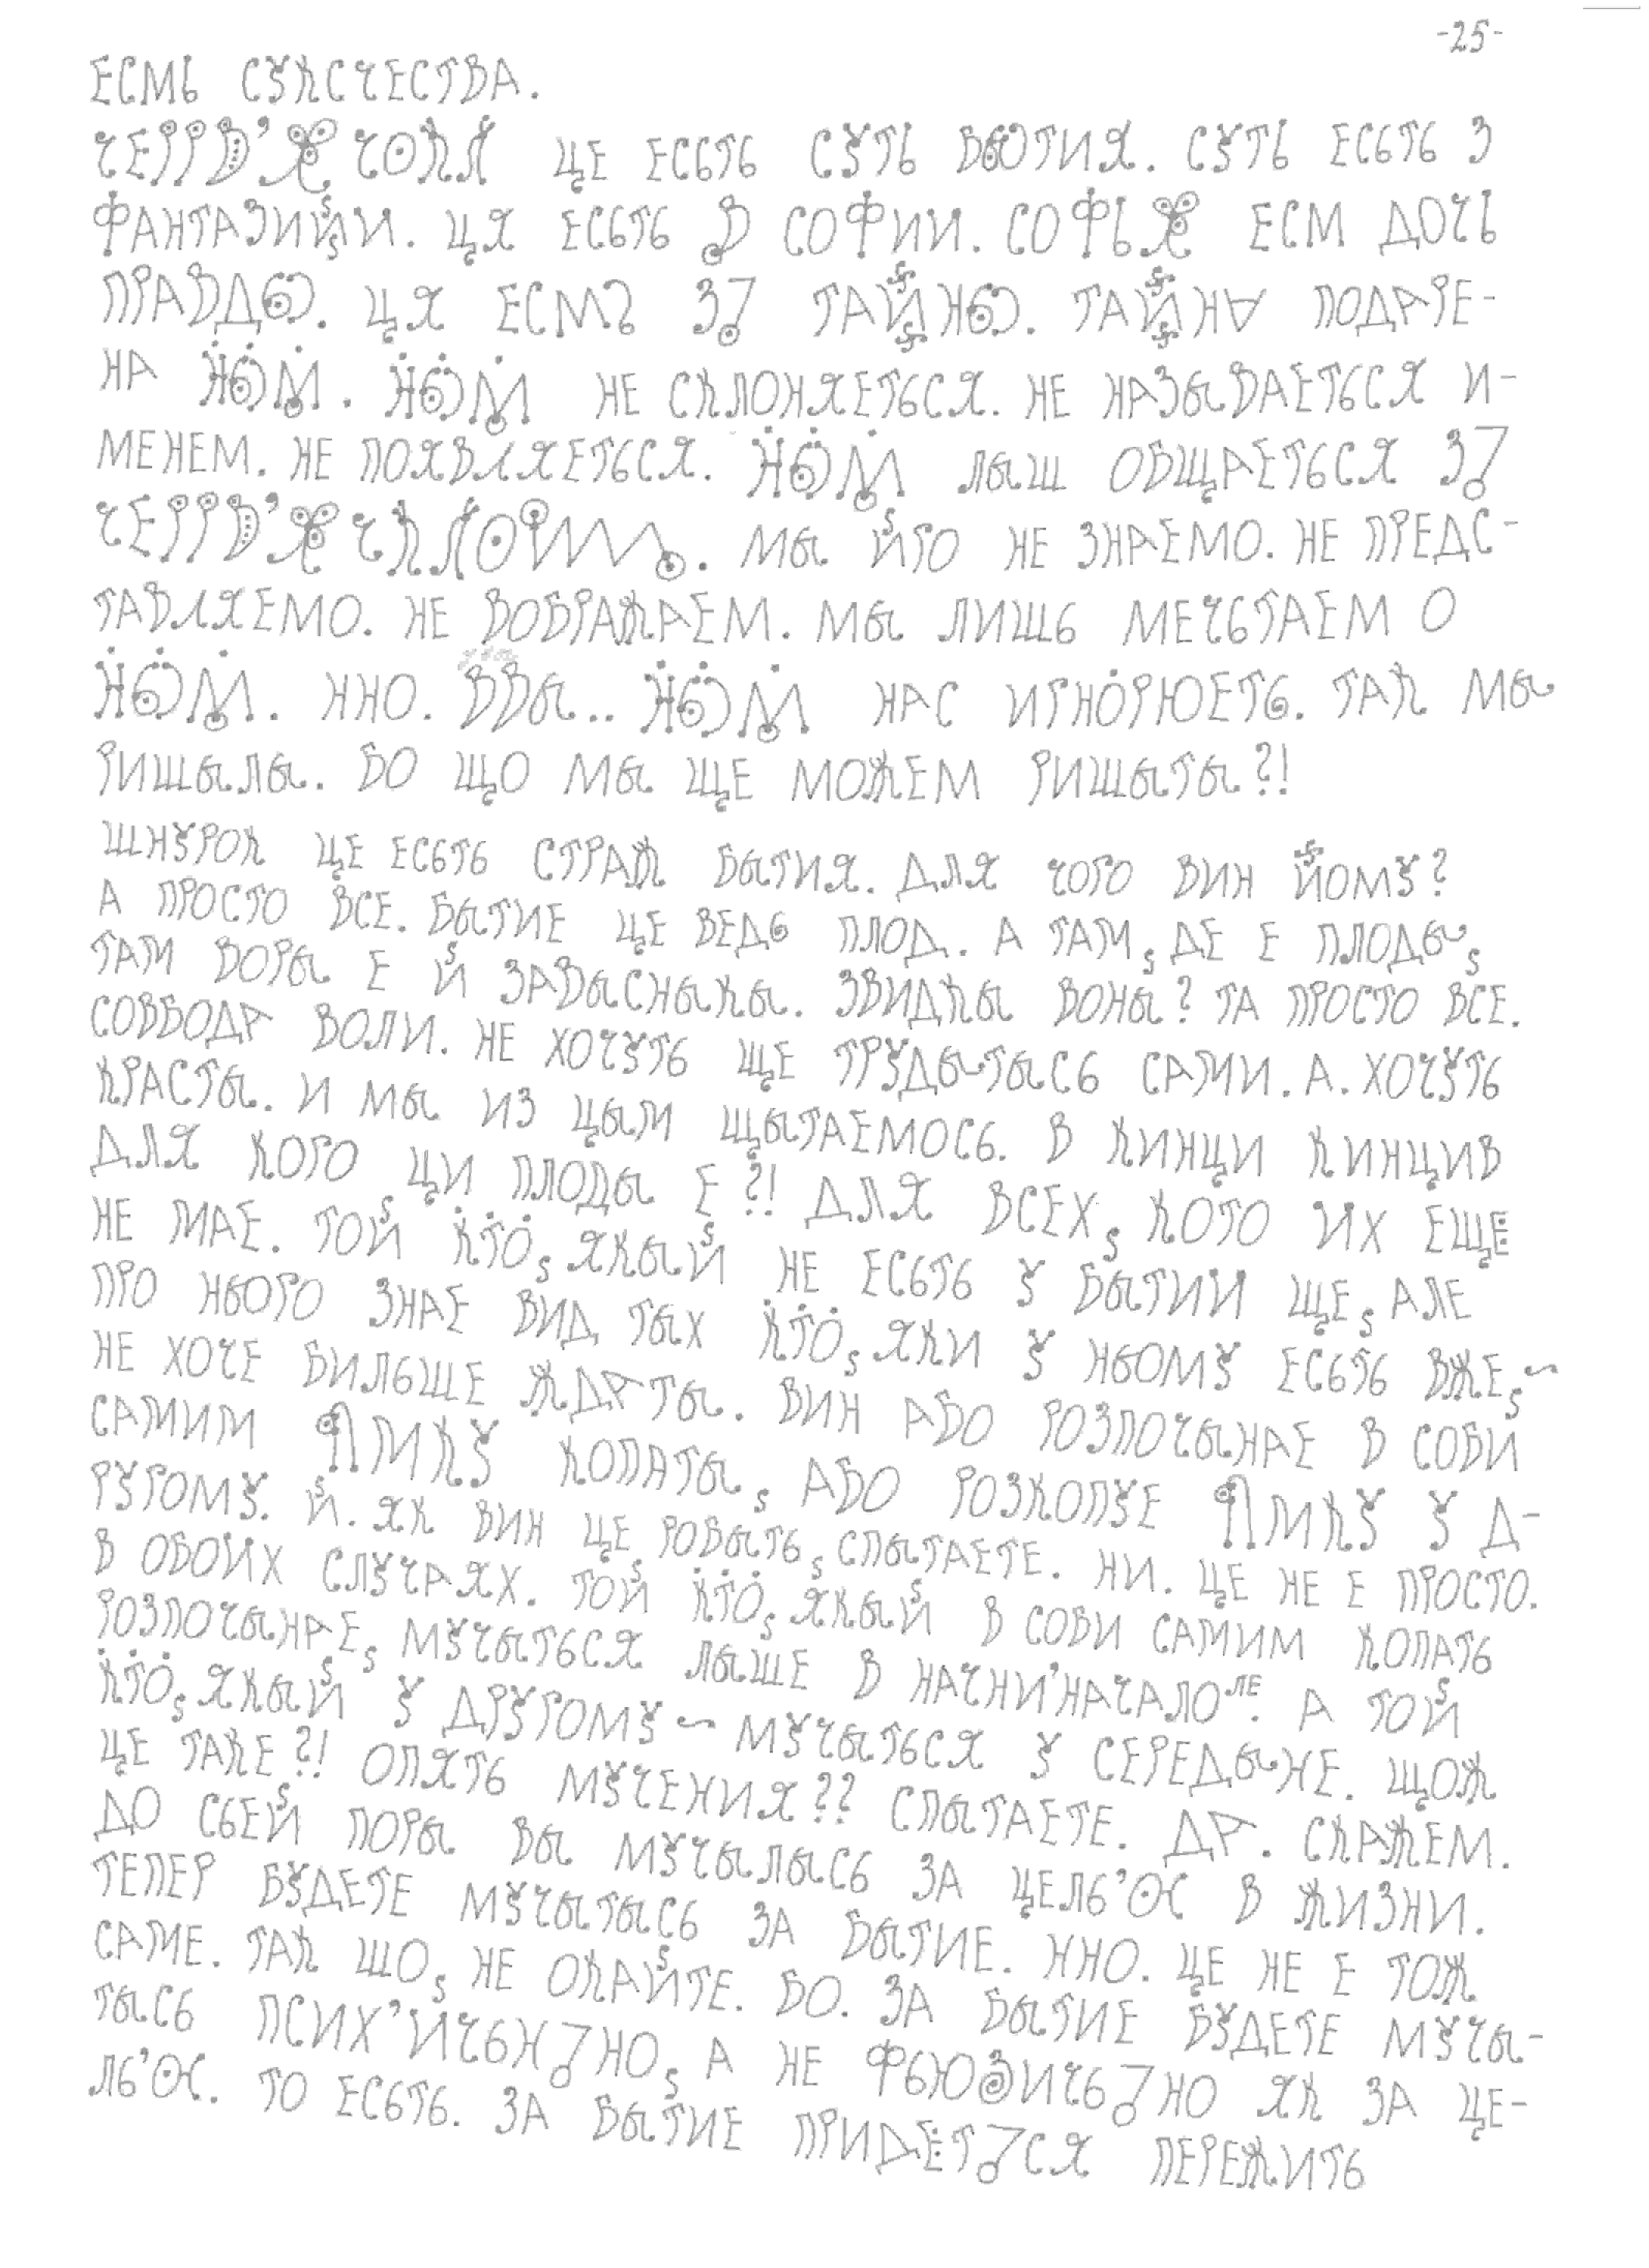 -25-
ЕСМЬ СУКСЧЕСТВА.
ЦЕ ЕСЬТЬ СУТЬ БЮТИЯ. СУТЬ ЕСЬТЬ З
ФАНТАЗИЙИ. ЦЯ ЕСЬТЬ В СОФИИ. СОФЬЯ ЕСМ ДОЧЬ
ЦЯ ПОДАРЕ-
НА НЕ СКЛОНЯЕТЬСЯ. НЕ НАЗЫВАЕТЬСЯ И-
МЕНЕМ. НЕ ПОЯВЛЯЕТЬСЯ. ЛЫШ ОБЩАЕТЬСЯ
МЫ ЙГО НЕ ЗНАЕМО. НЕ ПРЕДС-
ТАВЛЯЕМО. НЕ ВОБРАЖАЕМ. МЫ ЛИШЬ МЕЧЬТАЕМ О
ННО. ВВЫ.. НАС ИГНОРЮЕТЬ. ТАК МЫ
РИШЫЛЫ. БО ЩО МЫ ЩЕ МОЖЕМ РИШЫТЫ?!
ШНУРОК ЦЕ ЕСЬТЬ СТРАЖ БЫТИЯ. ДЛЯ ЧОГО ВИН ЙОМУ?
А ПРОСТО ВСЕ. БЫТИЕ ЦЕ ВЕДЬ ПЛОД. А ТАМ, ДЕ Е ПЛОДЫ,
ТАМ ВОРЫ Е Й ЗАВЫСНЫКЫ. ЗВИДКЫ ВОНЫ? ТА ПРОСТО ВСЕ.
СОВБОДА ВОЛИ. НЕ ХОЧУТЬ ЩЕ ТРУДЫТЫСЬ САМИ. А. ХОЧУТЬ
КРАСТЫ. И МЫ ИЗ ЦЫМ ЩЫТАЕМОСЬ. В КИНЦИ КИНЦИВ
ДЛЯ КОГО ЦИ ПЛОДЫ Е?! ДЛЯ ВСЕХ, КОГО ИХ ЕЩЕ
НЕ МАЕ. ТОЙ КТО, ЯКЫЙ НЕ ЕСЬТЬ У БЫТИИ ЩЕ, АЛЕ
ПРО НЬОГО ЗНАЕ ВИД ТЫХ КТО, ЯКИ У НЬОМУ ЕСЬТЬ ВЖЕ, ~
НЕ ХОЧЕ БИЛЬШЕ ЖДАТЫ. ВИН АБО РОЗПОЧЫНАЕ В СОБИ
САМИМ ЯМКУ КОПАТЫ, АБО РОЗКОПУЕ ЯМКУ У Д-
РУГОМУ. Й. ЯК ВИН ЦЕ РОБЫТЬ, СПЫТАЕТЕ. НИ. ЦЕ НЕ Е ПРОСТО.
В ОБОИХ СЛУЧАЯХ. ТОЙ КТО, ЯКЫЙ В СОБИ САМИМ КОПАТЬ
РОЗПОЧЫНАЕ, МУЧЫТЬСЯ ЛЫШЕ В НАЧНИ'НАЧАЛОЛЕ. А ТОЙ
КТО, ЯКЫЙ У ДРУГОМУ ~ МУЧЫТЬСЯ У СЕРЕДЫНЕ. ЩОЖ
ЦЕ ТАКЕ?! ОПЯТЬ МУЧЕНИЯ?? СПЫТАЕТЕ. ДА. СКАЖЕМ.
ДО СЬЕЙ ПОРЫ ВЫ МУЧЫЛЫСЬ ЗА В ЖИЗНИ.
ТЕПЕР БУДЕТЕ МУЧЫТЫСЬ ЗА БЫТИЕ. ННО. ЦЕ НЕ Е ТОЖ
САМЕ. ТАК ШО, НЕ ОКАЙТЕ. БО. ЗА БЫТИЕ БУДЕТЕ МУЧЫ-
ТЫСЬ А НЕ ЯК ЗА
ТО ЕСЬТЬ. ЗА БЫТИЕ ПЕРЕЖИТЬ